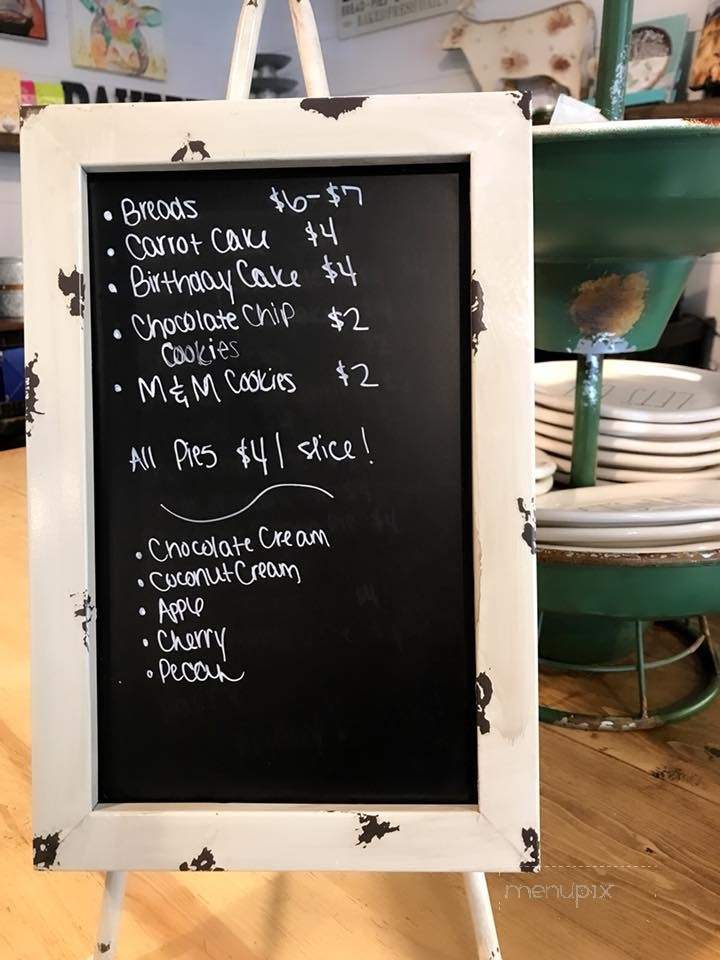 • Breads $6-$7
• Carrot Cake $4
• Birthday Cake $4
• Chocolate Chip $2
Cookies
• M&M Cookies $2
All Pies $4/slice!
• Chocolate Cream
• Coconut Cream
• Apple
• Cherry
• Pecan
menupix